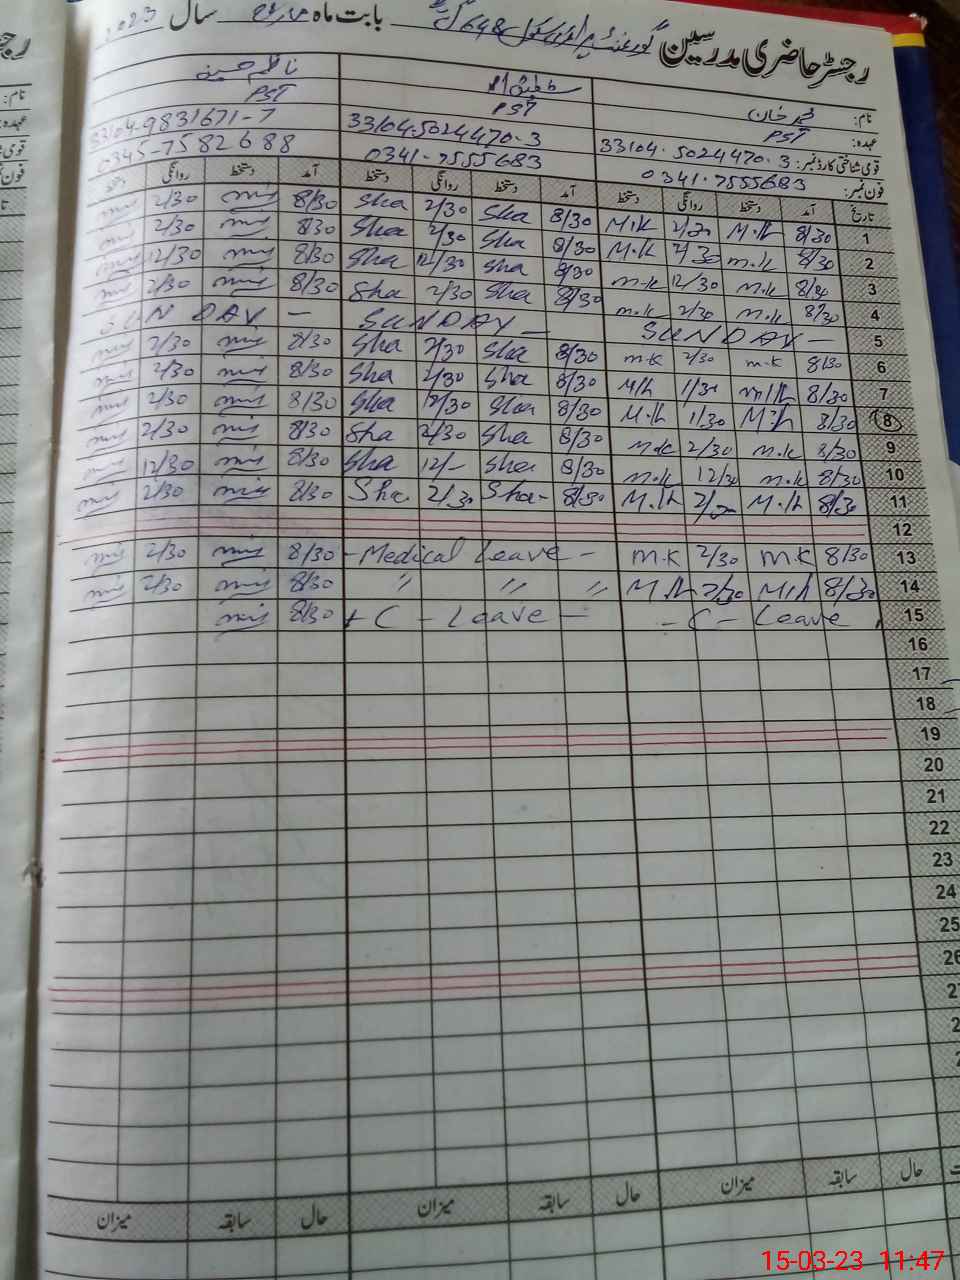 رجسٹر حاضری مدرسین گورنمنٹ پرائمری سکول 648 گ ب بابت ماہ مارچ سال 2023
نام: خان
عہدہ: PST PST PST
قومی شناختی کارڈ نمبر: 33104-5024470-3 33104-5024470-3 33104-9831671-7
فون نمبر: 0341-7555683 0341-7555683 0345-7582688
تاریخ آمد دستخط روانگی دستخط آمد دستخط روانگی دستخط آمد دستخط روانگی دستخط
1 8/30 M.K M.K 8/30 Sha 2/30 Sha 8/30 2/30
2 8/30 m.k 2/30 M.K 8/30 Sha 2/30 Sha 8/30 2/30
3 8/30 m.k 12/30 m.k 8/30 Sha 12/30 Sha 8/30 12/30
4 8/30 m.k 2/30 m.k 8/30 Sha 2/30 Sha 8/30 2/30
5 SUNDAY — SUNDAY — SUNDAY —
6 8/30 m.k 2/30 m.k 8/30 Sha 2/30 Sha 8/30 2/30
7 8/30 M.K 1/30 M.K 8/30 Sha 2/30 Sha 8/30 2/30
8 8/30 M.K 1/30 M.K 8/30 Sha Sha 8/30 2/30
9 8/30 m.k 2/30 m.k 8/30 Sha 2/30 Sha 8/30 2/30
10 8/30 m.k 12/30 m.k 8/30 Sha 12/- Sha 8/30 12/30
11 8/30 M.K M.K 8/30 Sha- 2/30 Sha. 8/30 2/30
12
13 8/30 M.K 2/30 M.K - Medical Leave - 8/30 2/30
14 8/30 M.K 2/30 M.K " " " 8/30 2/30
15 - C - Leave + C - Leave - 8/30
16
17
18
19
20
21
22
23
24
25
26
حال سابقہ میزان حال سابقہ میزان حال سابقہ میزان
15-03-23 11:47